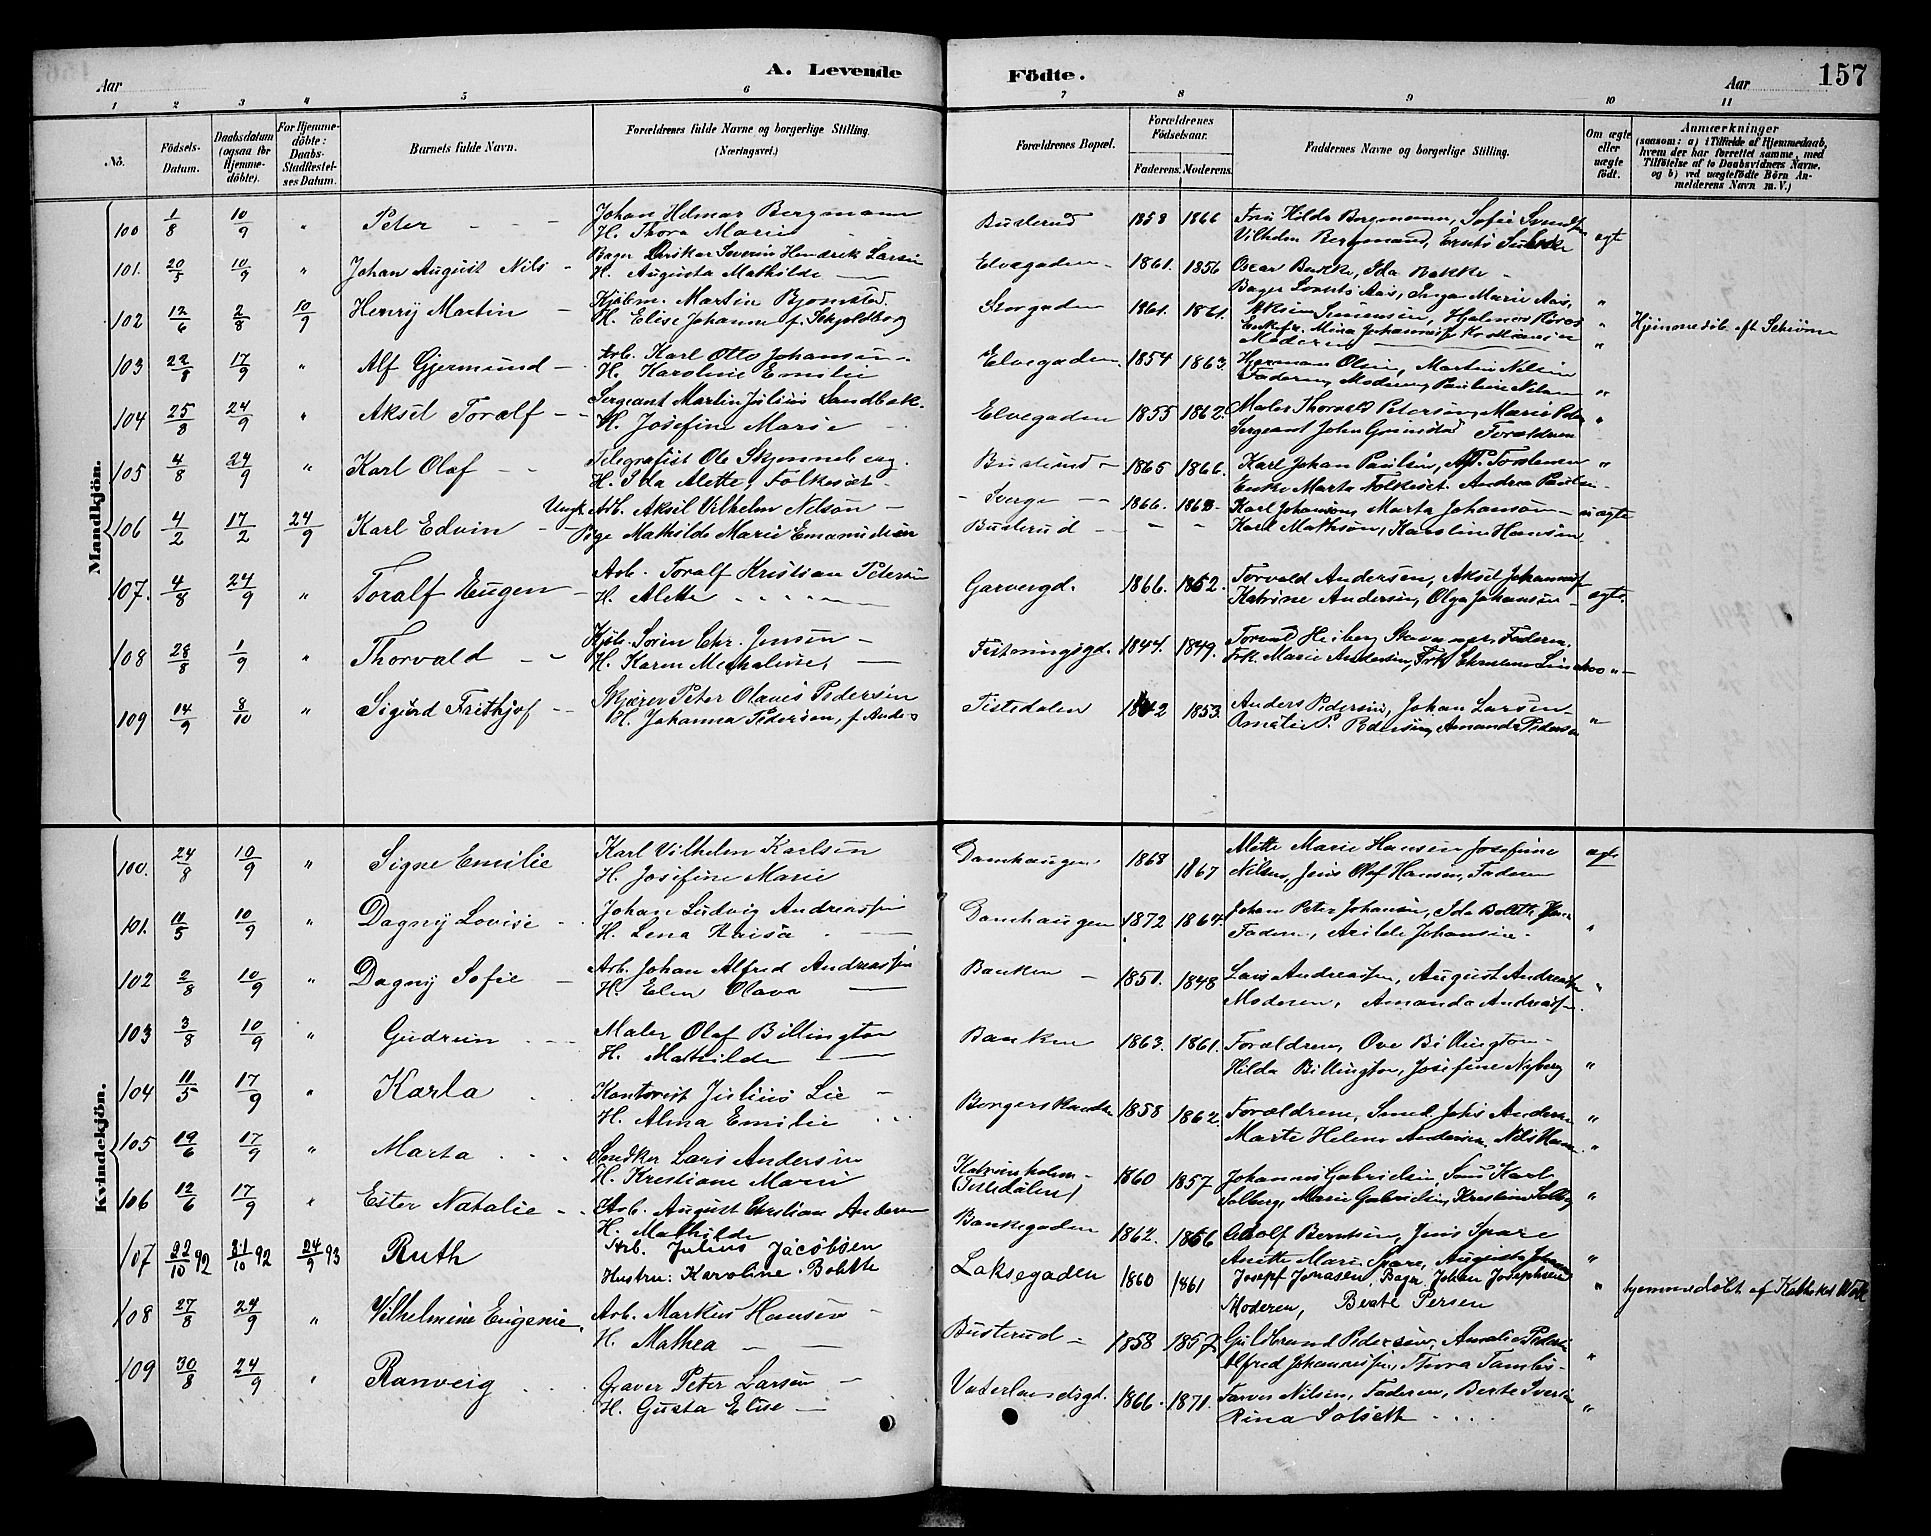 A. Levende Födte.
157
Aar
Aar
1 2 3 4 5 6 7 8 9 10 11
No.
Födsels-Datum.
Daabsdatum (ogsaa for Hjemme-döbte).
For Hjemme-döbte: Daabs-Stadfæstel-ses Datum.
Barnets fulde Navn.
Forældrenes fulde Navne og borgerlige Stilling.
(Næringsvei.)
Forældrenes Bopæl.
Forældrenes Födselsaar.
Faderens. Moderens.
Faddernes Navne og borgerlige Stilling.
Om ægte eller uægte födt.
Anmærkninger
(saasom: a) i Tilfælde af Hjemmedaab, hvem der har forrettet samme, med Tilföielse af to Daabsvidners Navne. og b) ved uægtefödte Börn An-melderens Navn m. V.)
Mandkjön.
100 1/8 10/9 " Peter - - Johan Helmar Bergmann Busterud 1858 1866 Fru Hilda Bergmann, Sofie
H. Thora Marie Vilhelm Bergmand, ægt
101. 20/5 10/9 " Johan August Nils - Bager Severin Hendrik Larsen Elvegaden - 1861. 1856 Oscar Bakke, Ida Bakke -
H. Augusta Mathilde
102 12/6 2/8 10/9 Henry Martin - Kjøbm. Martin Bjørnstad Storgaden 1861. 1861.
H. Elise Johanne f. Skjoldborg " Hjemmedøb. af
103 22/8 17/9 " Alf Gjermund - Arb. Karl Otto Johansen - Elvegaden. 1854 1863. Herman Olsen, Martin Nilsen
H. Karoline Emilie Faderen, Moderen, Pauline Nilsen "
104 25/8 24/9 " Aksel Toralf - - Sergeant Martin Julius Sandbæk. Elvegaden 1855 1862. Maler Thorvald Petersen, Marie
H. Josefine Marie Sergeant John Grimstad Forældrene "
105 4/8 24/9 " Karl Olaf - - Telegrafist Ole Skjønneberg. Busterud - 1865 1866. Karl Johan Paulsen,
H. Ida Alette, Folkeset - Enke Marta Folkeset. Andrea Paulsen "
106 4/2 17/2 24/9 Karl Edvin - - Ungk. Arb. Aksel Vilhelm Nelson - - Sverge - - 1866. 1868 - Karl Johanson, Marta Johanson - uægte
Pige Mathilde Marie Busterud - - - Karl Mathson, Karoline Hansen
107. 4/8 24/9 " Toralf Eugen - Arb. Toralf Kristian Petersen Garvergd. 1866. 1852. Torvald Andersen, Aksel Johannesf
H. Alette Katrine Andersen, Olga Johansen - ægt.
108 28/8 1/9 " Thorvald - - Kjøb. Sören Chr. Jensen - Festningsgd. 1844. 1849. Torvald Heiberg Faderen,
H. Karen Frk. Marie Andersen, Frk
109 14/9 8/10 " Sigurd Frithjof - - Skjærer Peter Olaves Pedersen Tistedalen 1842 1853. Anders Pedersen, Johan Larsen
H. Johanna Pedersen, f. Anders Pedersen, Amanda Pedersen "
Kvindekjön.
100. 24/8 10/9 " Signe Emilie Karl Vilhelm Karlsen Damhaugen 1868 1867 Mette Marie Hansen Josefine ægte
H. Josefine Marie Nilsen, Jens Olaf Hansen, Faderen
101. 11/5 10/9 " Dagny Lovise - - Johan Ludvig Andreassen Damhaugen 1872 1864. Johan Peter Johansen, Ida Bolette
H. Lena Raisa Faderen, Johansen - "
102 2/8 10/9 " Dagny Sofie - Arb. Johan Alfred Andreassen Banken - 1851. 1848 Lars Andreassen, August Andreassen
H. Elen Olava Moderen, Amanda Andreassen. "
103 3/8 10/9 " Gudrun - - - Maler Olaf Billington Banken 1863. 1861. Forældrene, Ove Billington -
H. Mathilde Hilda Billington, Josefine Nyberg "
104 11/5 17/9 " Karla Kontorist Julius Lie - 1858 1862 Forældrene, Smed
H. Alma Emilie Marte Helene Andersen, "
105 19/6 17/9 " Marta Snedker Lars Andersen Katrinholm - (Tistedalen) 1860 1857 Johannes Gabrielsen, Karl
H. Kristiane Marie Solberg, Marie Gabrielsen, "
106 12/6 17/9 " Ester Natalie - - Arb. August Christian Andersen Bankegaden 1862. 1866 Adolf Berntsen, Jens Spare
H. Mathilde Anette Marie Spare, "
107 22/10 92 31/10 92 24/9 93 Ruth Arb. Julius Jacobsen Laksegaden 1860 1861 Josef Jonasen, Bager Johan Josephsen
Hustru: Karoline Bolette Moderen, Beate Persen " hjemmedøbt af
108 27/8 24/9 " Vilhelmine Eugenie. Arb. Markus Hansen - Busterud - 1858 1857 Gulbrand Pedersen, Amalie Pedersen
H. Mathea - - Alfred Johannessen, Thora "
109 30/8 24/9 " Ranveig Graver Peter Larsen - Vaterlandsgd. 1866. 1871. Nilsen, Faderen, Berte
H. Gusta Elise - Rina "